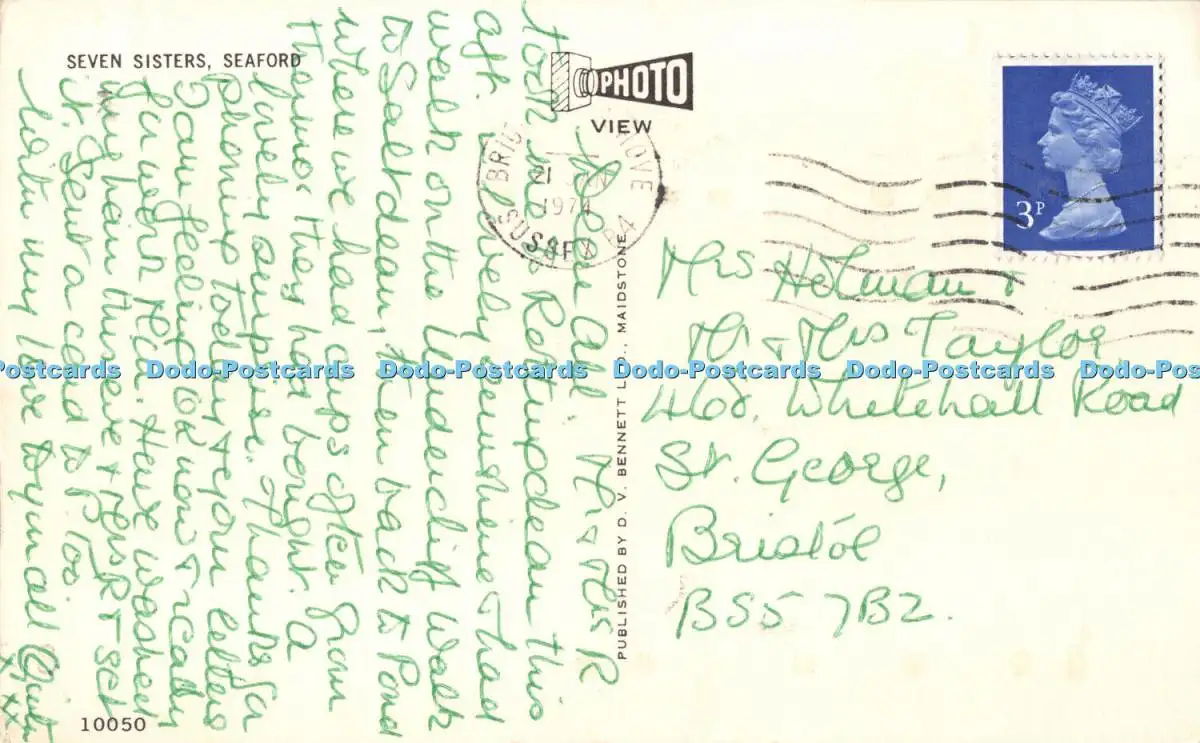 SEVEN SISTERS, SEAFORD
PHOTO
VIEW
BRIG HOVE
21 JAN
1974
SUSSEX B4
3P
My dear All. Mr & Mrs R
took me to Rottingdean this
aft. Lovely sunshine & had
walk on the Undercliff Walk
to Saltdean, then back to Pond
where we had cups of tea from
thermos they had bought. A
lovely surprise. Thanks for
phoning today & for letters
I am feeling OK now & really
from well. Have washed
my hair this eve & Mrs R set
it. Sent a card to P. too.
With my love to you all
xxx
PUBLISHED BY D. V. BENNETT LTD., MAIDSTONE
Mrs Holman &
Mr & Mrs Taylor,
468, Whitehall Road
St. George,
Bristol
BS5 7BZ.
10050
Dodo-Postcards Dodo-Postcards Dodo-Postcards Dodo-Postcards Dodo-Postcards Dodo-Pos